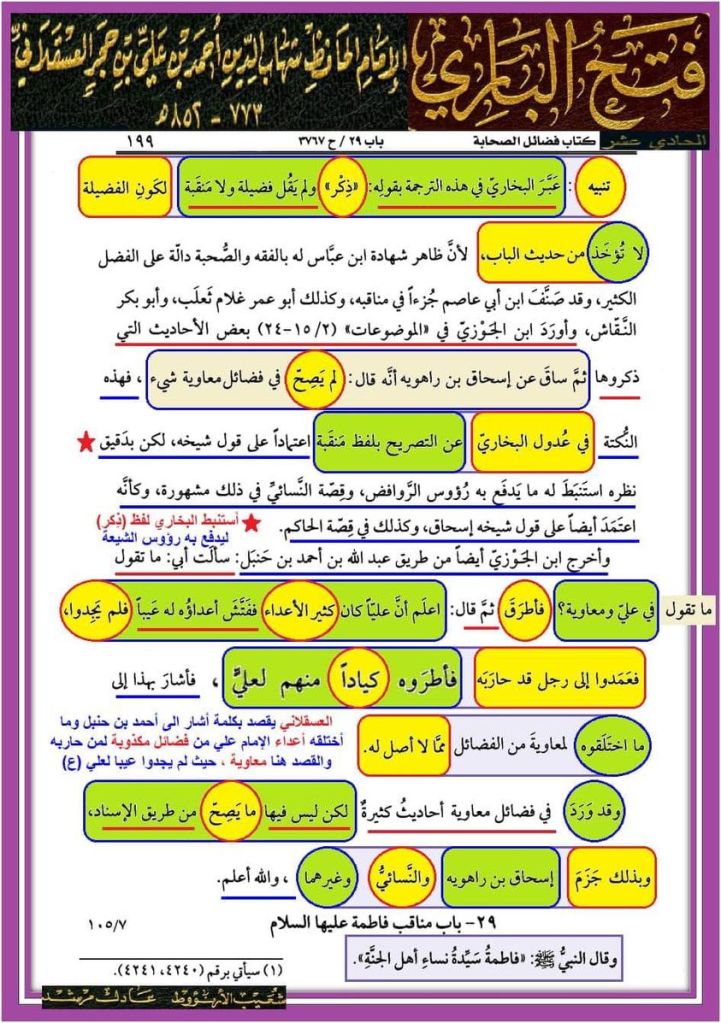 فتح الباري
الإمام الحافظ شهاب الدين أحمد بن علي بن حجر العسقلاني
٧٧٣ - ٨٥٢ هـ
الحادي عشر
كتاب فضائل الصحابة
باب ٢٩ / ح ٣٧٦٧
١٩٩
تنبيه : عَبَّرَ البخاريّ في هذه الترجمة بقولِه: «ذِكْر» ولم يَقُل فضيلة ولا مَنقَبة لكَونِ الفضيلة
لا تُؤخَذ من حديث الباب، لأنَّ ظاهر شهادة ابن عبَّاس له بالفقه والصُّحبة دالّة على الفضل
الكثير، وقد صَنَّفَ ابن أبي عاصم جُزءاً في مناقبه، وكذلك أبو عمر غلام ثَعلَب، وأبو بكر
النَّقّاش، وأورَدَ ابن الجَوْزيّ في «الموضوعات» (٢/ ١٥-٢٤) بعض الأحاديث التي
ذكروها ثمَّ ساقَ عن إسحاق بن راهويه أنَّه قال: لم يَصِحّ في فضائل معاوية شيء ، فهذه
النُّكتة في عُدول البخاريّ عن التصريح بلفظ مَنقَبة اعتماداً على قول شيخه، لكن بدَقيق
نظره استَنبَطَ له ما يَدفَع به رُؤوس الرَّوافض، وقِصّة النَّسائيِّ في ذلك مشهورة، وكأنَّه
اعتَمَدَ أيضاً على قول شيخه إسحاق، وكذلك في قِصّة الحاكم.
أستنبط البخاري لفظ (ذِكر)
ليدفع به رؤوس الشيعة
وأخرج ابن الجَوْزيّ أيضاً من طريق عبد الله بن أحمد بن حَنبَل: سألت أبي: ما تقول
ما تقول في عليّ ومعاوية؟ فأطرَقَ ثمَّ قال: اعلَم أنَّ عليّاً كان كثير الأعداء ففَتَّشَ أعداؤُه له عَيباً فلم يَجِدوا،
فعَمَدوا إلى رجل قد حارَبَه فأطرَوه كياداً منهم لعليٍّ ، فأشارَ بهذا إلى
ما اختَلَقوه لمعاويةَ من الفضائل ممَّا لا أصل له.
العسقلاني يقصد بكلمة أشار الى أحمد بن حنبل وما
أختلقه أعداء الإمام علي من فضائل مكذوبة لمن حاربه
والقصد هنا معاوية ، حيث لم يجدوا عيبا لعلي (ع)
وقد وَرَدَ في فضائل معاوية أحاديثُ كثيرةٌ لكن ليس فيها ما يَصِحّ من طريق الإسناد،
وبذلك جَزَمَ إسحاق بن راهويه والنَّسائيُّ وغيرهما ، والله أعلم.
٢٩- باب مناقب فاطمة عليها السلام
١٠٥/٧
وقال النبيُّ ﷺ: «فاطمةُ سَيِّدةُ نساءِ أهل الجنَّةِ».
(١) سيأتي برقم (٤٢٤٠، ٤٢٤١).
شعيب الأرنؤوط عادل مرشد